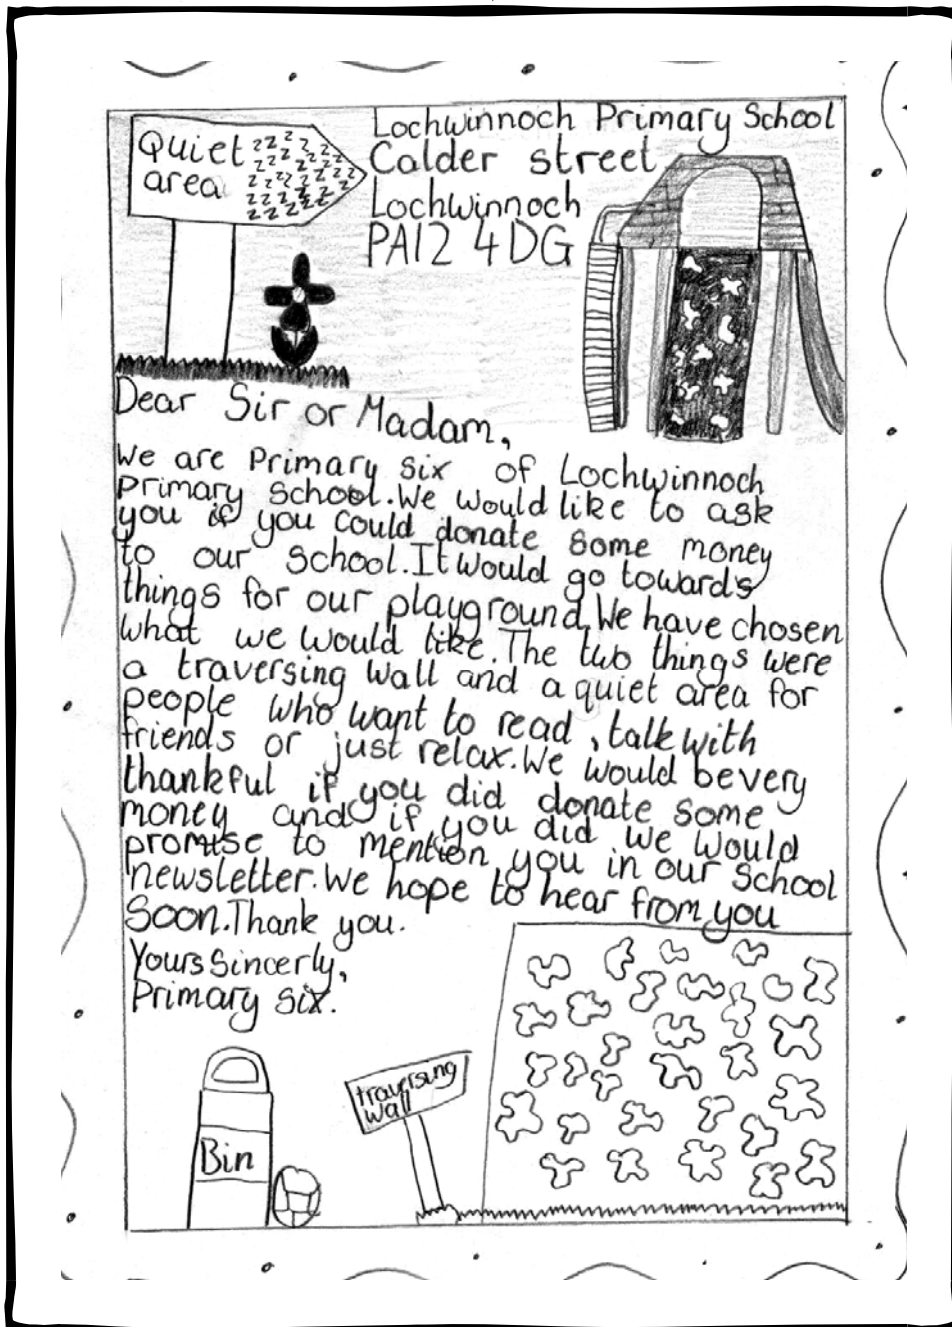 Quiet zzzzzz
area zzzzzz
Lochwinnoch Primary School
Calder street
Lochwinnoch
PA12 4DG
Dear Sir or Madam,
We are Primary six of Lochwinnoch
primary school. We would like to ask
you if you could donate some money
to our school. It would go towards
things for our playground. We have chosen
what we would like. The two things were
a traversing wall and a quiet area for
people who want to read, talk with
friends or just relax. We would be very
thankful if you did donate some
money and if you did we would
promise to mention you in our school
newsletter. We hope to hear from you
soon. Thank you.
Yours Sincerly,
Primary six.
Bin
traversing
wall